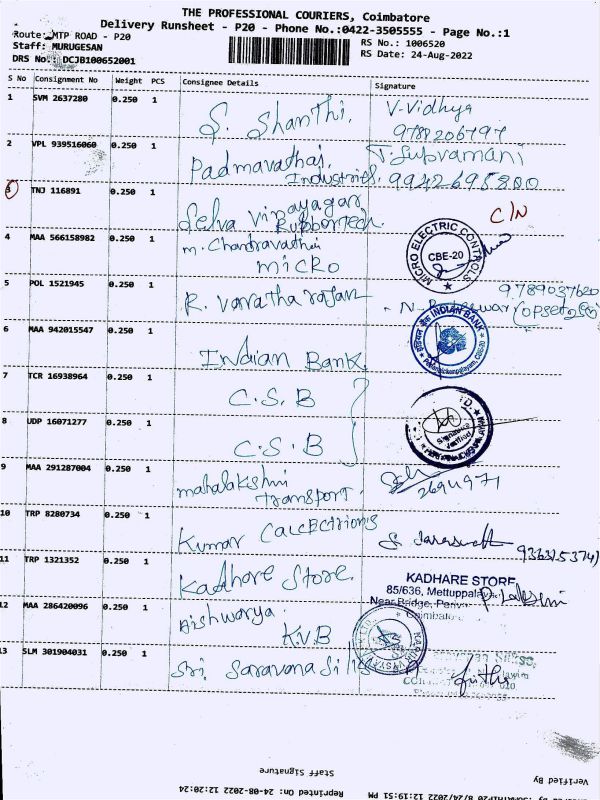 THE PROFESSIONAL COURIERS, Coimbatore
Delivery Runsheet - P20 - Phone No.:0422-3505555 - Page No.:1
Route: MTP ROAD - P20
RS No.: 1006520
Staff: MURUGESAN
RS Date: 24-Aug-2022
DRS No.: DCJB100652001
S No Consignment No Weight PCS Consignee Details Signature
1 SVM 2637280 0.250 1 S. Shanthi. V-Vidhya
9788206797
2 VPL 939516060 0.250 1 Padmavathai T. Subramani
Industries. 9942695800
3 TNJ 116891 0.250 1 Selva Vinayagar C/N
Rubbortech.
4 MAA 566158982 0.250 1 M. Chandravathi
MICRO
MICRO ELECTRIC CONTROLS
CBE-20
5 POL 1521945 0.250 1 R. Varatharajan 9789037620
6 MAA 942015547 0.250 1 Indian Bank
INDIAN BANK
7 TCR 16938964 0.250 1 C.S.B
8 UDP 16071277 0.250 1 C.S.B
Signature
Verified
9 MAA 291287004 0.250 1 mahalakshmi
Transport. 2694971
10 TRP 8280734 0.250 1 Kumar
11 TRP 1321352 0.250 1 Kadhore Store.
KADHARE STORE
85/636, Mettuppalay
Near Bridge, Periya
Coimbato
12 MAA 286420096 0.250 1 Aishwarya.
K.V.B
13 SLM 301904031 0.250 1 Sri Saravana Silks
Staff Signature
Verified By
Reprinted On: 24-08-2022 12:20:12
8/24/2022 12:19:51 PM